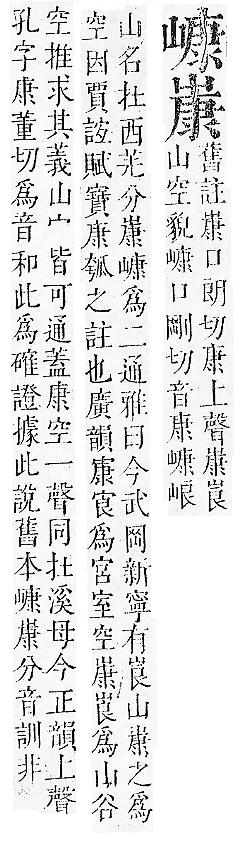 嵻嵻
舊註嵻口朗切康上聲嵻崀
山空貌嵻口剛切音康嵻㟍
山名在西羌分嵻嵻爲二通雅曰今武岡新寧有崀山嵻之爲
空因賈誼賦寶康瓠之註也廣韻㝩㝗爲宮室空嵻崀爲山谷
空推求其義山宀皆可通蓋康空一聲同在溪母今正韻上聲
孔字康董切爲音和此爲確證據此說舊本嵻嵻分音訓非